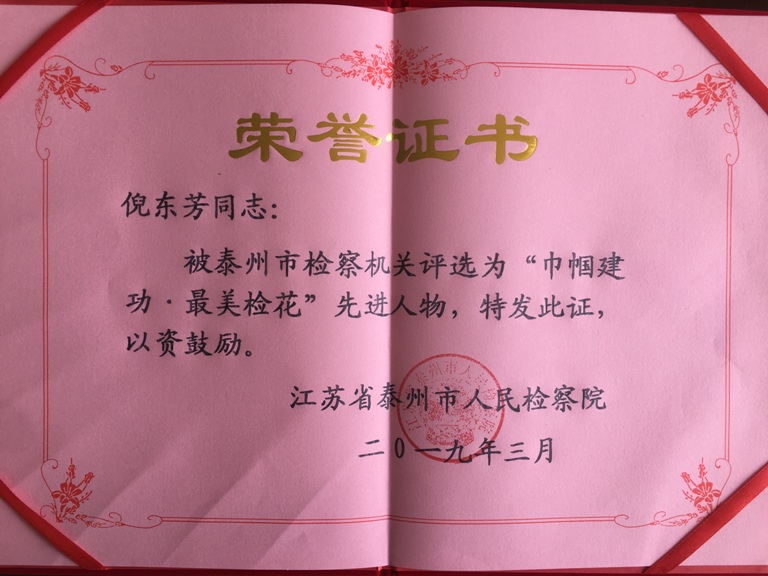 荣誉证书
倪东芳同志：
被泰州市检察机关评选为“巾帼建
功·最美检花”先进人物，特发此证，
以资鼓励。
江苏省泰州市人民检察院
二〇一九年三月